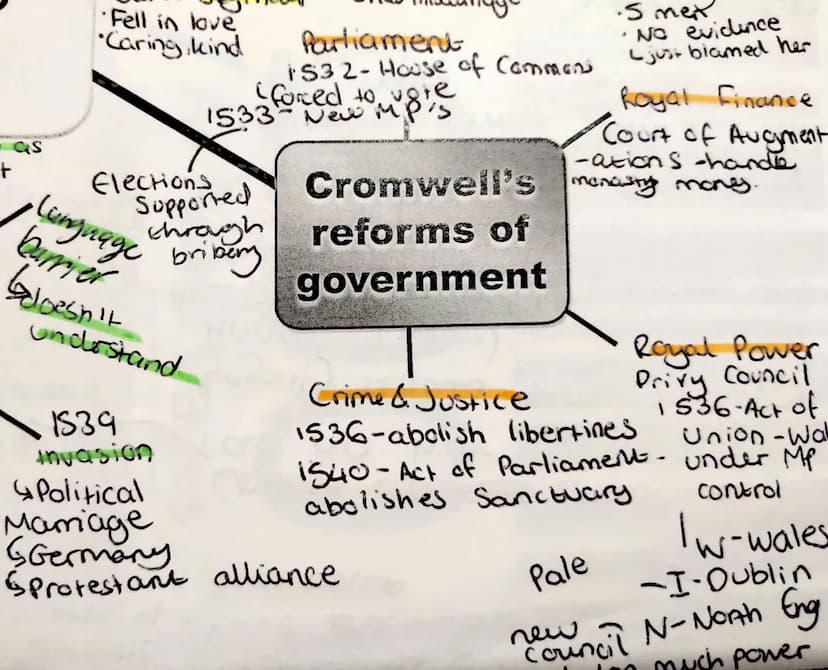 Fell in love
Caring, kind
Parliament
1532- House of Commons
forced to vote
1533- New MP's
Elections
supported
through
bribery
5 men
No evidence
just blamed her
Royal Finance
Court of Augment
-ations -handle
monastry money.
as
Language
barrier
doesn't
understand
Cromwell's
reforms of
government
Crime & Justice
1536-abolish libertines
1540- Act of Parliament-
abolishes Sanctuary
Royal Power
Privy Council
1536-Act of
Union -Wal
under MP
control
1539
invasion
Political
Marriage
Germany
Protestant alliance
Pale
new
council
W-Wales
I-Dublin
N-North Eng
much power